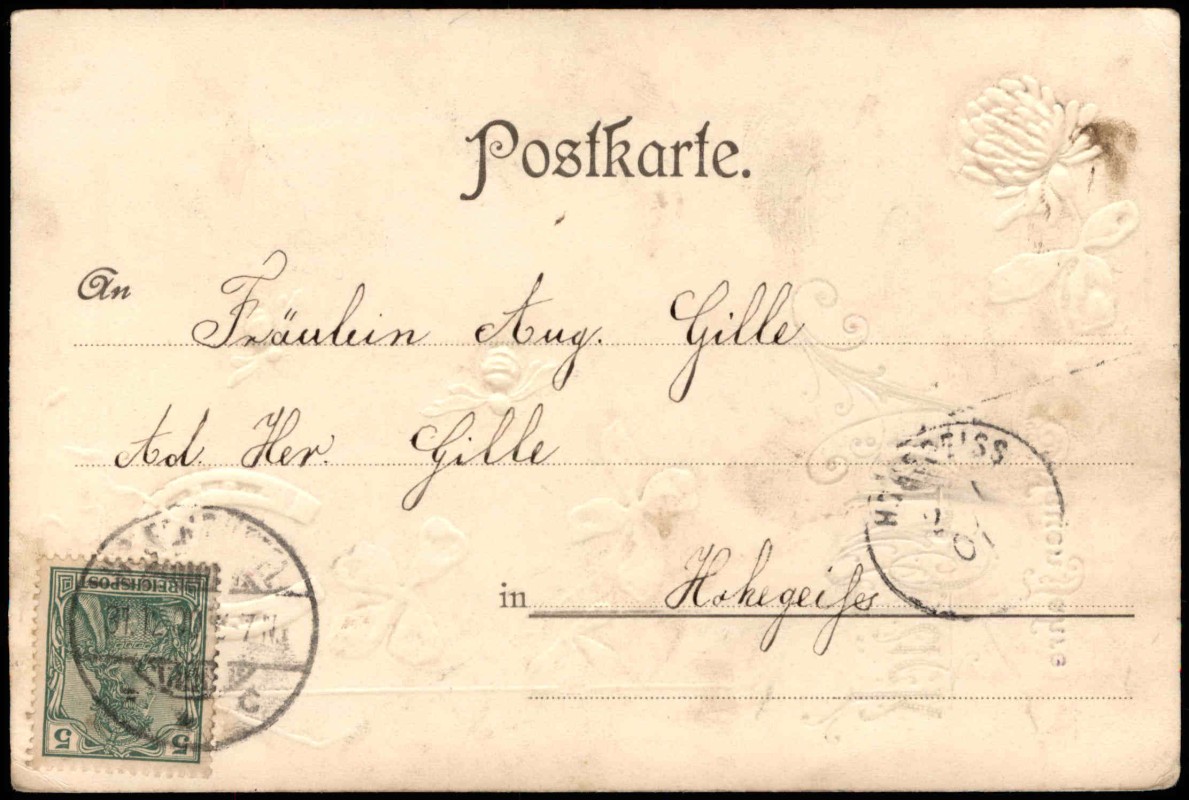 Postkarte.
An Fräulein Aug. Gille
Ad. Her. Gille
in Hohegeiſs
REICHSPOST
5 5